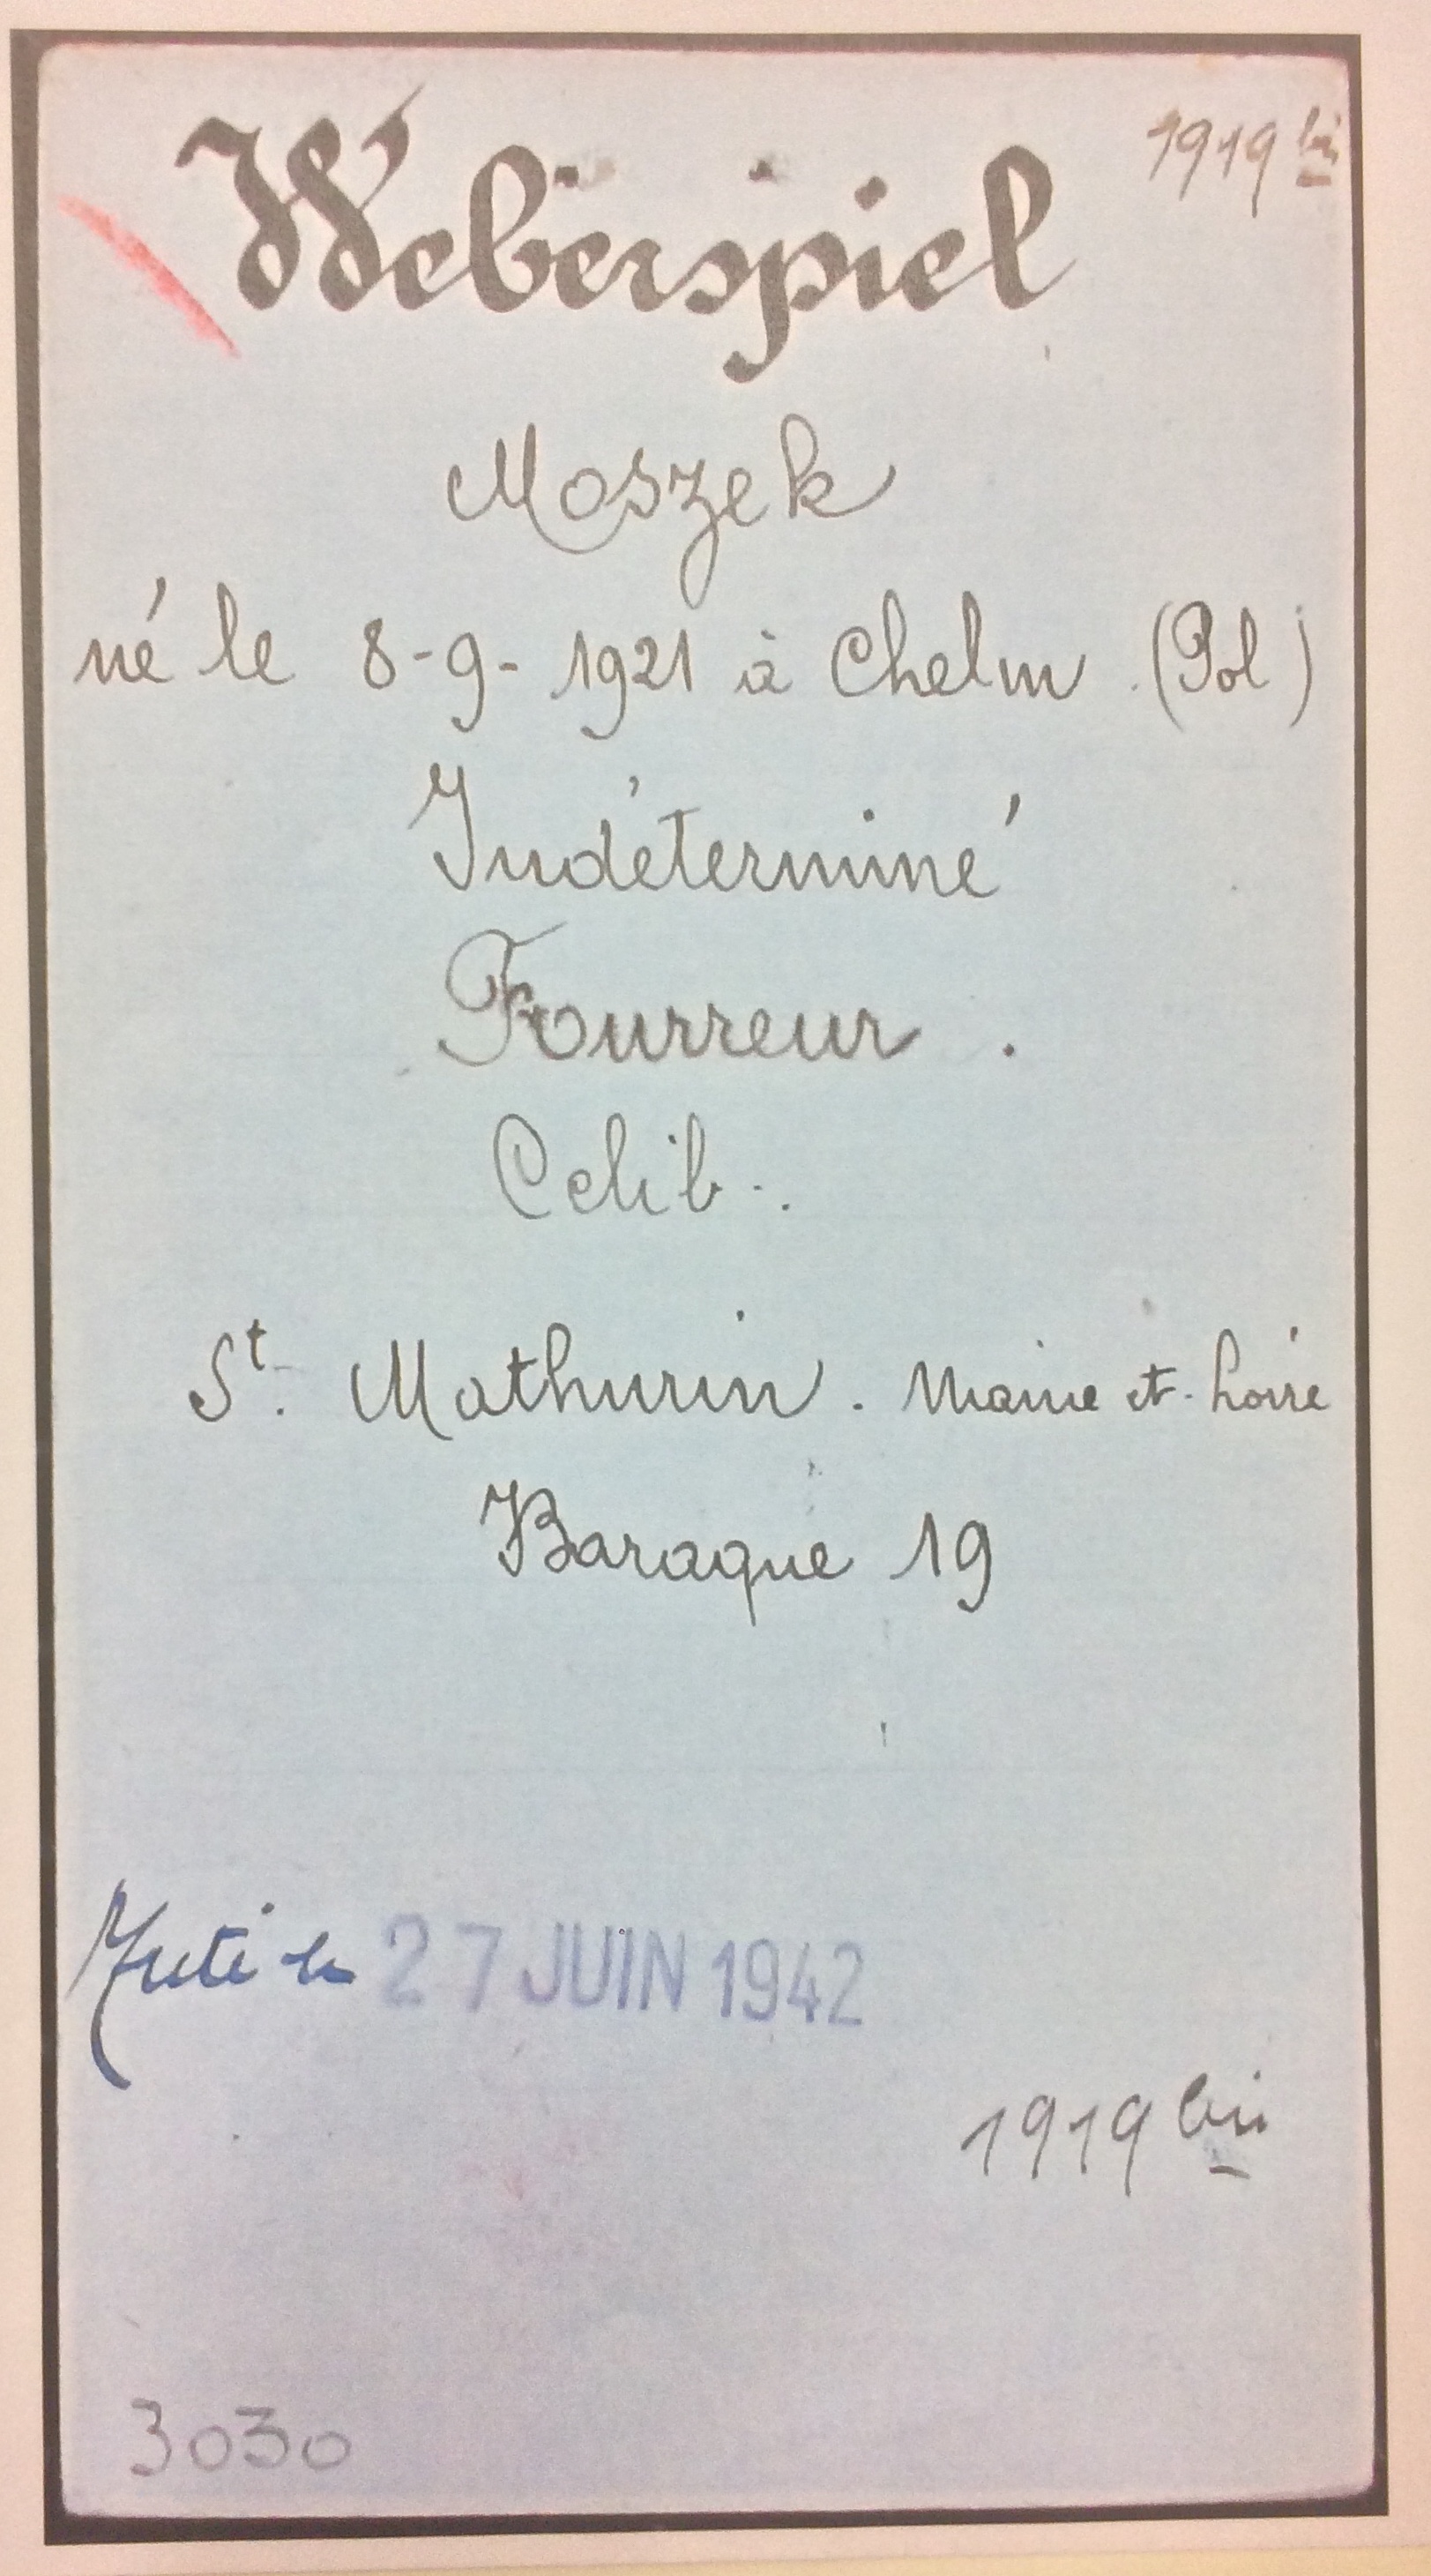 1919 bis
Weberspiel
Moszek
né le 8-9-1921 à Chelm (Pol)
Indéterminé
Fourreur.
Celib..
St. Mathurin. Maine et-Loire
Baraque 19
Muté le 27 JUIN 1942
1919 bis
3030